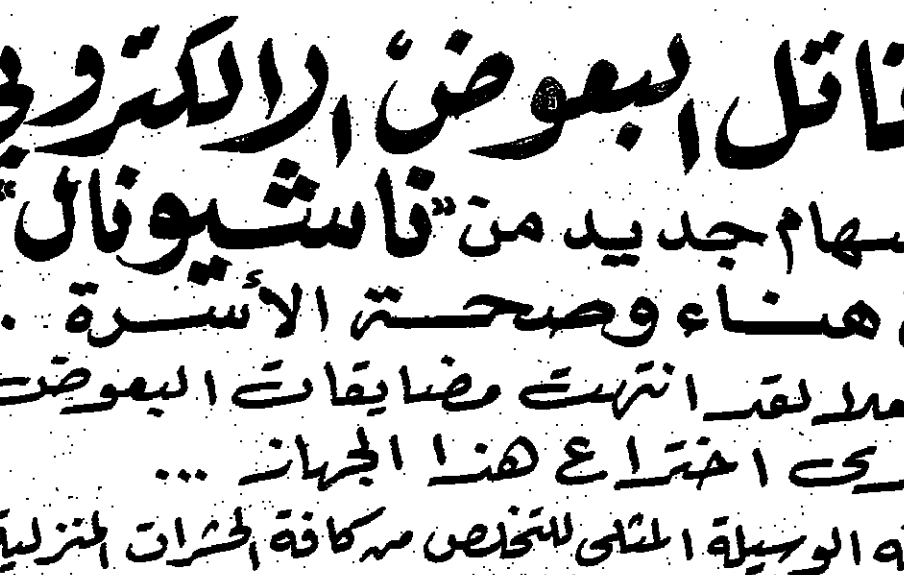 قاتل البعوض الالكتروني
سهام جديد من "ناشيونال"
هناء وصحة الأسرة .
فعلا لقد انتهت مضايقات البعوض
اختراع هذا الجهاز ...
الوسيلة المثلى للتخلص من كافة الحشرات المنزلية